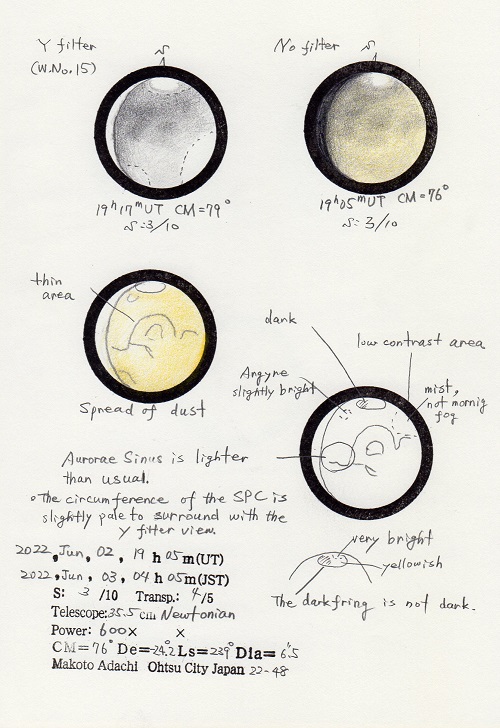 Y filter
(W.No.15)
S
19h 17m UT CM=79°
S:3/10
No filter
S
19h 05m UT CM=76°
S:3/10
thin
area
Spread of dust
dank
low contrast area
Argyre
slightly bright
mist,
not mornig
fog
Aurorae Sinus is lighter
than usual.
The circumference of the SPC is
slightly pale to surround with the
Y filter view.
very bright
yellowish
The darkfring is not dark.
2022, Jun, 02, 19 h 05 m (UT)
2022, Jun, 03, 04 h 05 m (JST)
S: 3 /10 Transp.: 4/5
Telescope: 35.5 cm Newtonian
Power: 600× ×
CM=76° De=-24.2 Ls=239° Dia=6".5
Makoto Adachi Ohtsu City Japan 22-48